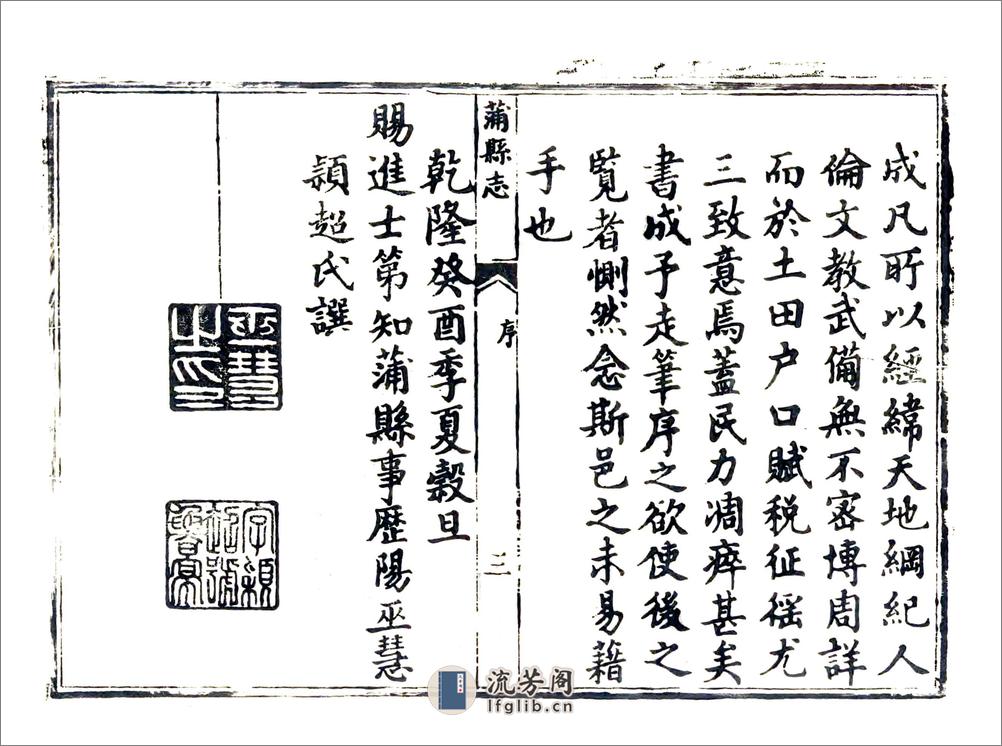 成凡所以經緯天地綱紀人
倫文教武備無不宻博周詳
而於土田户口賦税征徭尤
三致意焉蓋民力凋瘁甚矣
書成予走筆序之欲使後之
覽者惻然念斯邑之未易藉
手也
蒲縣志
序
三
乾隆癸酉季夏穀旦
賜進士第知蒲縣事歷陽巫慧
頴超氏譔
巫慧之印
字穎超號
流芳阁
lfglib.cn